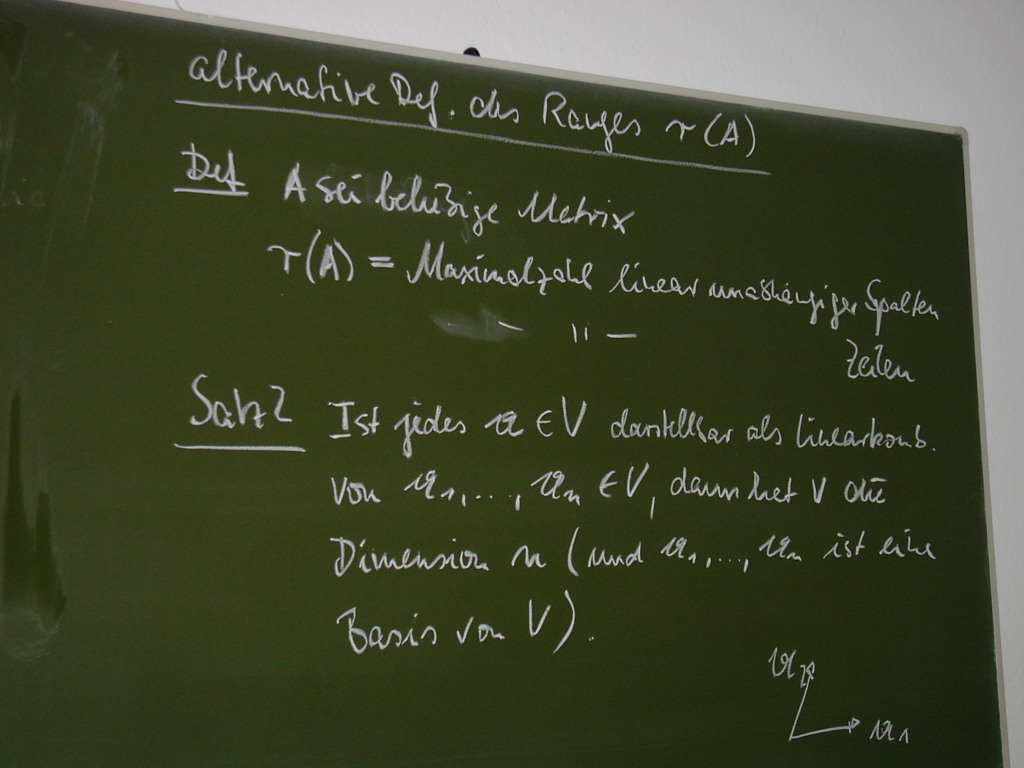 alternative Def. des Ranges r(A)
Def A sei beliebige Matrix
r(A) = Maximalzahl linear unabhängiger Spalten
— " — Zeilen
Satz 2 Ist jedes 𝔞 ∈ V darstellbar als Linearkomb.
von 𝔞₁,..., 𝔞ₙ ∈ V, dann hat V die
Dimension n (und 𝔞₁,..., 𝔞ₙ ist eine
Basis von V).
𝔞₂
𝔞₁